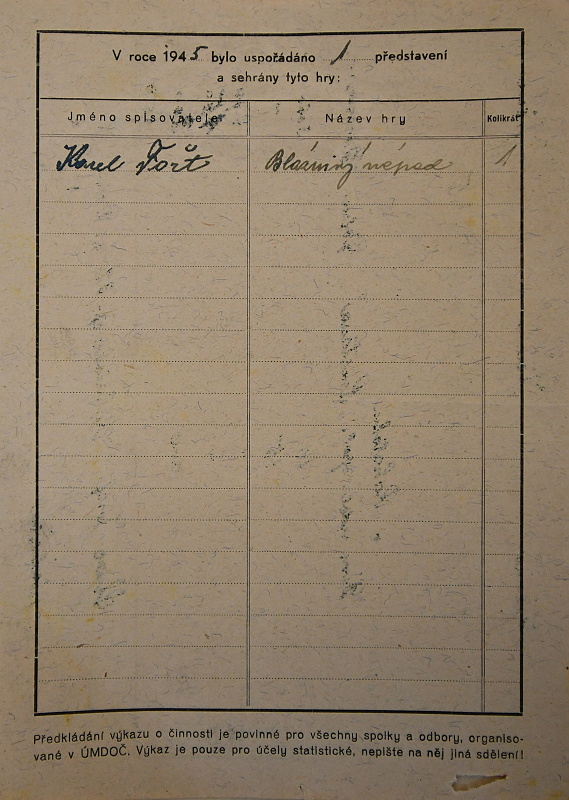 V roce 1945 bylo uspořádáno 1 představení
a sehrány tyto hry:
Jméno spisovatele Název hry Kolikrát
Karel Fořt Bláznivý nápad 1
Předkládání výkazu o činnosti je povinné pro všechny spolky a odbory, organiso-
vané v ÚMDOČ. Výkaz je pouze pro účely statistické, nepište na něj jiná sdělení!